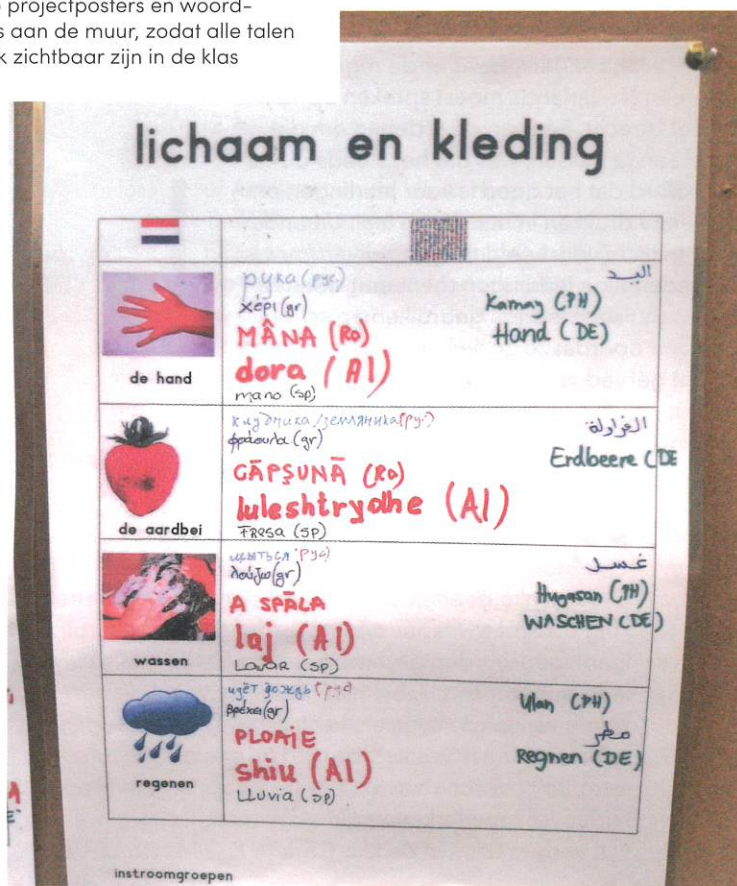 projectposters en woord-
aan de muur, zodat alle talen
zichtbaar zijn in de klas
lichaam en kleding
de hand
рука (рус)
χέρι (gr)
MÂNA (Ro)
dora (Al)
mano (sp)
اليد
Kamay (PH)
Hand (DE)
de aardbei
клубника/земляника (рус)
φράουλα (gr)
CĂPȘUNĂ (Ro)
luleshtrydhe (Al)
FResa (SP)
الفراولة
Erdbeere (DE
wassen
(рус)
λούζω (gr)
A SPĂLA
laj (Al)
LavaR (SP)
غسل
Hugasan (PH)
WASCHEN (DE)
regenen
идёт дождь (руc
βρέχει (gr)
PLOAIE
shiu (Al)
LLuvia (SP)
Ulan (PH)
مطر
Regnen (DE)
instroomgroepen